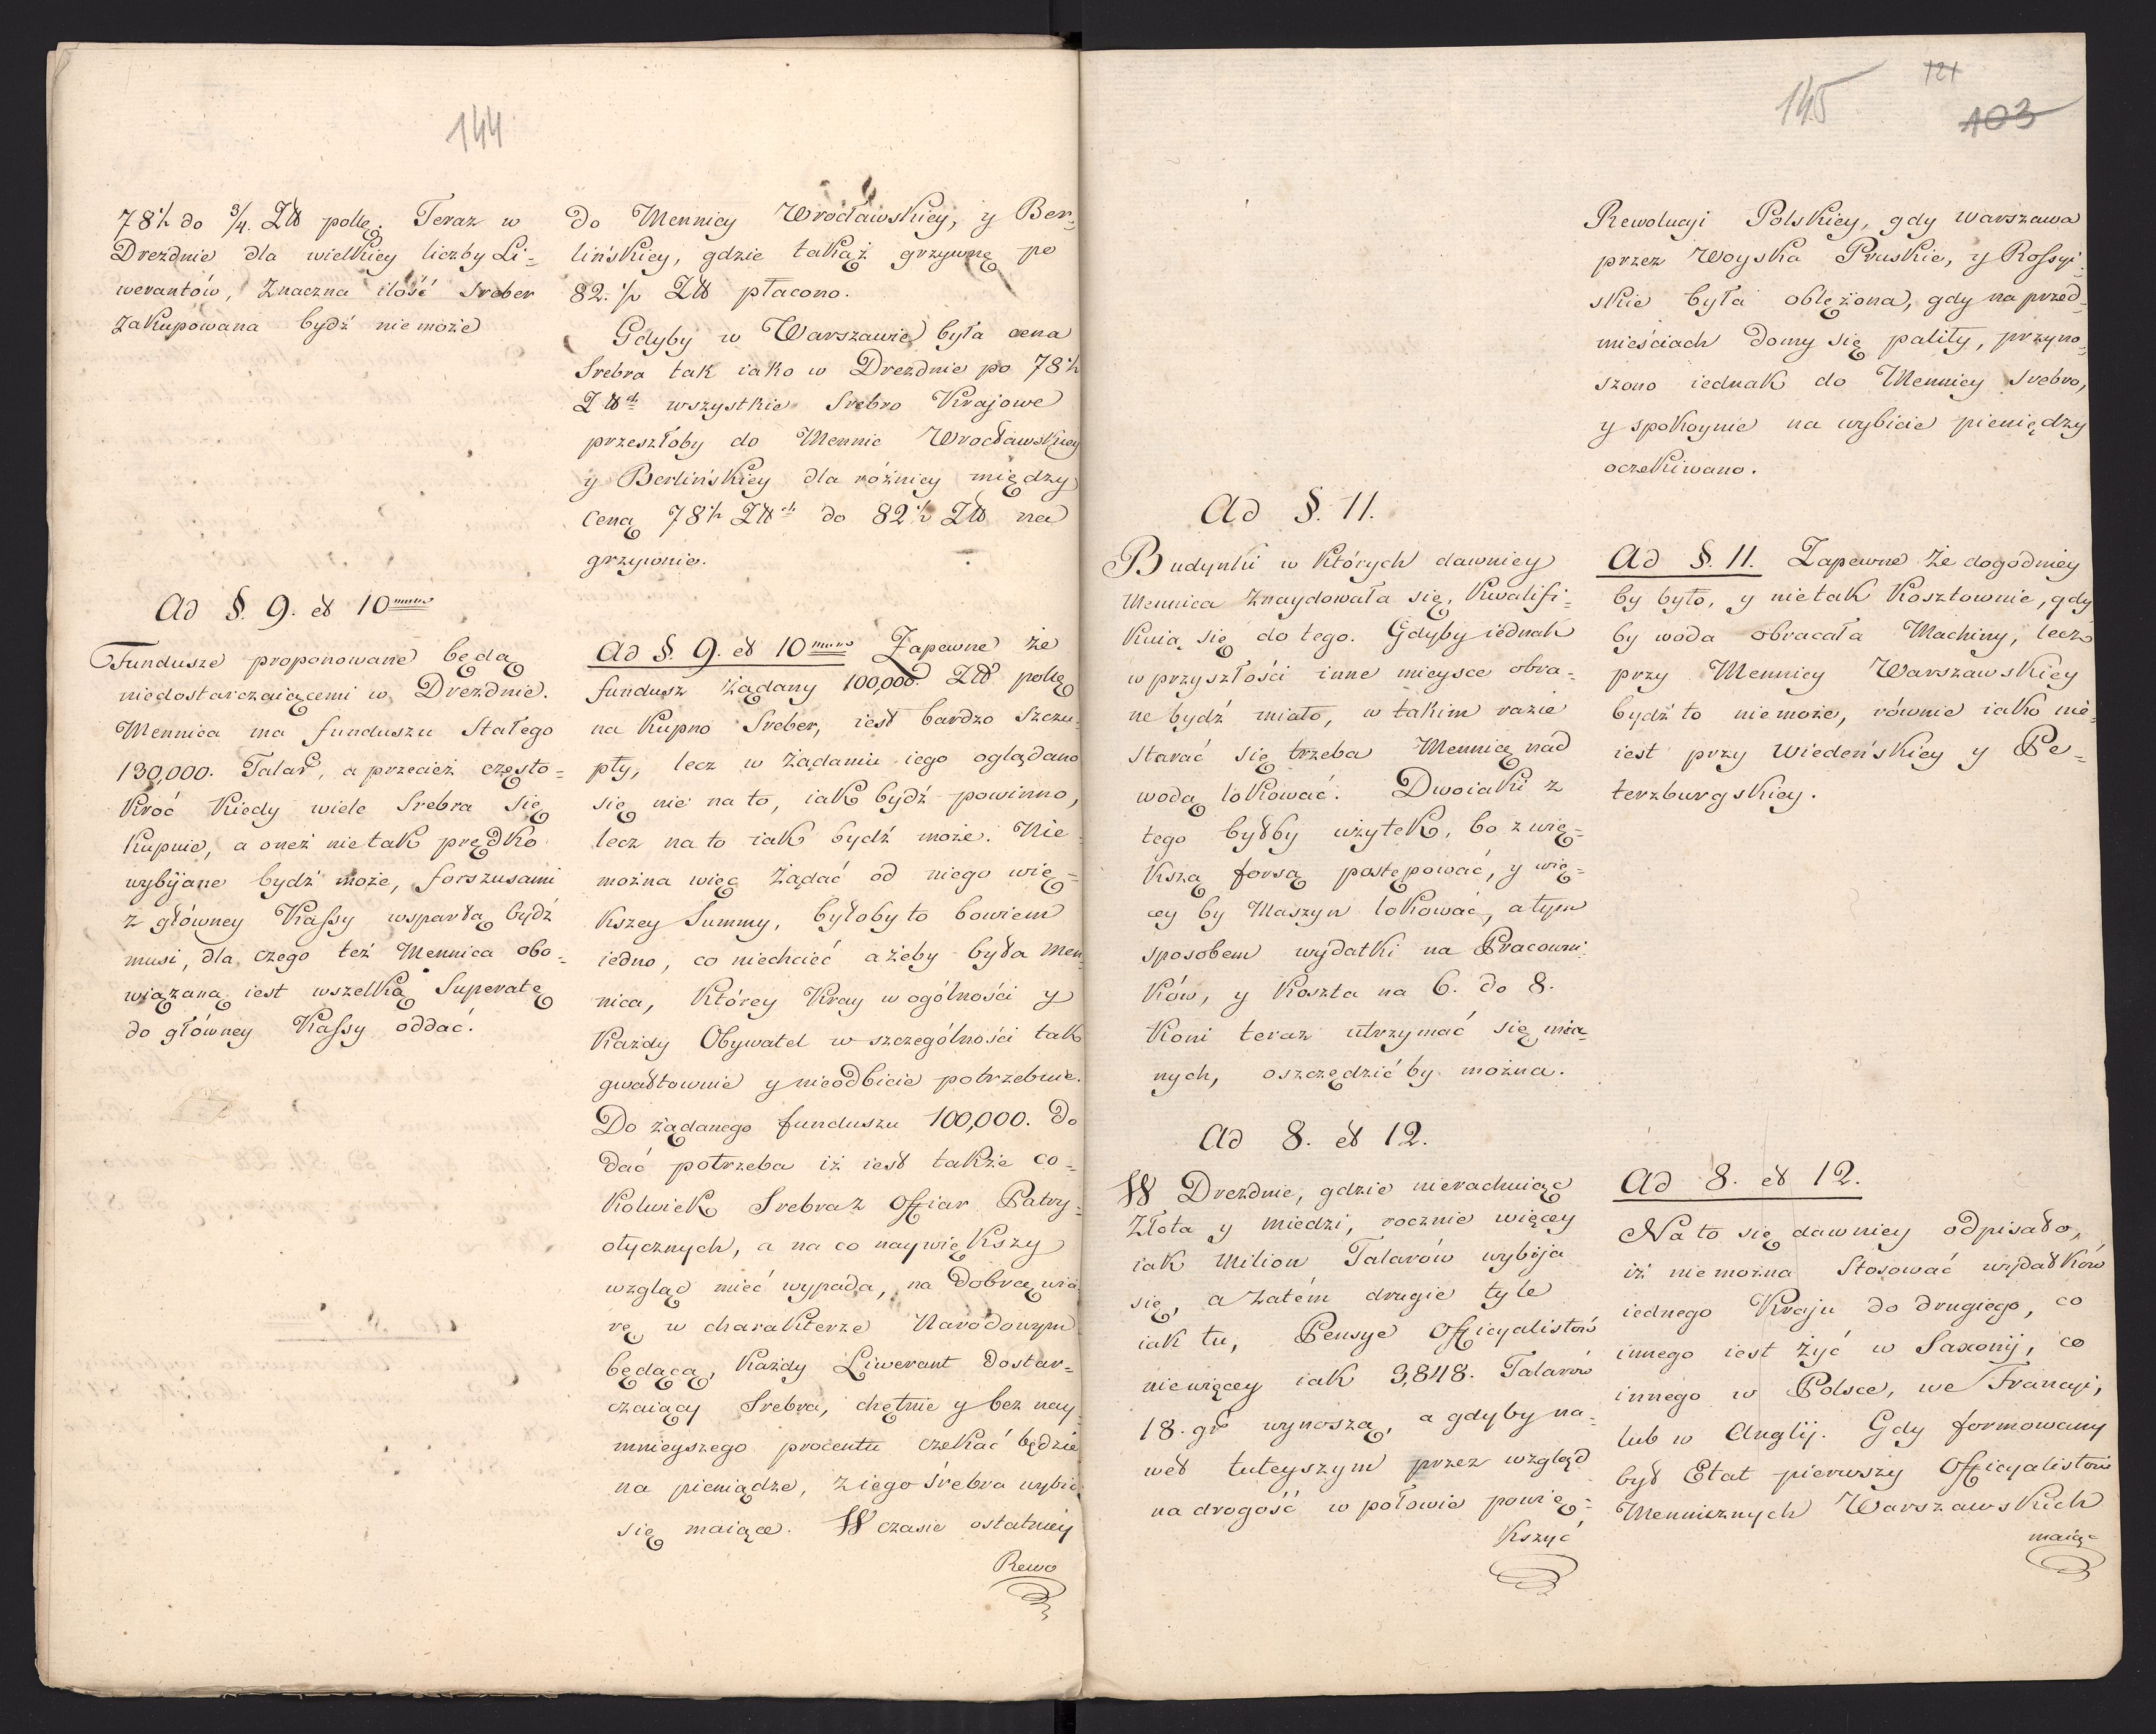 144
78½ do ¾. Zł polle. Teraz w
Dreznie dla wielkiey liczby Li-
werantów, Znaczna ilość Sreber
zakupowana bydź nie może
Ad §. 9. et 10mum
Fundusze proponowane będą
niedostarczaiącemi w Dreźdnie.
Mennica ma funduszu Stałego
130,000. Talar, a przecież często-
kroć kiedy wiele Srebra się
kupuie, a oneż nie tak prędko
wybijane bydź może, forszusami
z główney Kassy wspartą bydź
musi, dla czego też Mennica obo-
wiązaną iest wszelką Superatę
do główney Kassy oddać.
do Mennicy Wrocławskiey, y Ber-
lińskiey, gdzie takąż grzywnę po
82.½ Zł płacono.
Gdyby w Warszawie była cena
Srebra tak iako w Dreźdnie po 78½
Złch wszystkie Srebro Krajowe
przeszłoby do Mennic Wrocławskiey
y Berlińskiey dla różnicy między
Ceną 78½ Złch do 82½ Zł na
grzywnie.
Ad §. 9. et 10mum Zapewne że
fundusz żądany 100,000. Zł polle
na Kupno Sreber, iest bardzo Szczu-
pły, lecz w żądaniu iego oglądano
się nie na to, iak bydź powinno,
lecz na to iak bydź może. Nie-
można więc żądać od niego wię-
kszey Summy, byłoby to bowiem
iedno, co niechcieć ażeby była Men-
nica, którey Kray w ogólności y
Każdy Obywatel w szczególności tak
gwałtownie y nieodbicie potrzebuie.
Do żądanego funduszu 100,000. do
dać potrzeba iż iest także co-
kolwiek Srebra z Offiar Patry-
otycznych, a na co naywiększy
wzgląd mieć wypada, na dobrą wia-
rę w charakterze Narodowym
będącą, każdy Liwerant dostar-
czaiący Srebra, chętnie y bez nay-
mnieyszego procentu czekać będzie
na pieniądze, z iego śrebra wybić
się maiące. W czasie ostatniey
Rewo
145
121
103
Ad §. 11.
Budynki w których dawniey
Mennica Znaydowała się, kwalifi-
kuią się do tego. Gdyby iednak
w przyszłości inne mieysce obra-
ne bydź miało, w takim razie
starać się trzeba Mennicę nad
wodą lokować. Dwoiaki z
tego byłby użytek, bo z wię-
kszą forsą postępować, y wię-
cy by Maszyn lokować, a tym
sposobem wydatki na Pracowni-
ków, y koszta na 6. do 8.
Koni teraz utrzymać się mia-
nych, oszczędzić by można.
Ad 8. et 12.
W Dreźdnie, gdzie nierachuiąc
Złota y miedzi, rocznie więcey
iak Milion Talarów wybija
się, a zatém drugie tyle
iak tu, Pensye Officyalistów
nie więcey iak 3,848. Talarów
18. gr wynoszą, a gdyby na-
wet tuteyszym przez wzgląd
na drogość w połowie powię-
kszyć
Rewolucyi Polskiey, gdy Warszawa
przez Woyska Pruskie, y Rossyi-
skie była oblężona, gdy na przed-
mieściach domy się paliły, przyno-
szono iednak do Mennicy Srebro,
y spokoynie na wybicie pieniędzy
oczekiwano.
Ad §. 11. Zapewne że dogodniey
by było, y nie tak kosztownie, gdy
by woda obracała Machiny, lecz
przy Mennicy Warszawskiey
bydź to nie może, równie iako nie-
iest przy Wiedeńskiey y Pe-
terzburgskiey.
Ad 8. et 12.
Na to się dawniey odpisało,
iż nie można Stosować wydatków
iednego Kraju do drugiego, co
innego iest żyć w Saxonij, co
innego w Polsce, we Francyi,
lub w Anglij. Gdy formowany
był Etat pierwszy Officyalistów
Menniczych Warszawskich
maiąc